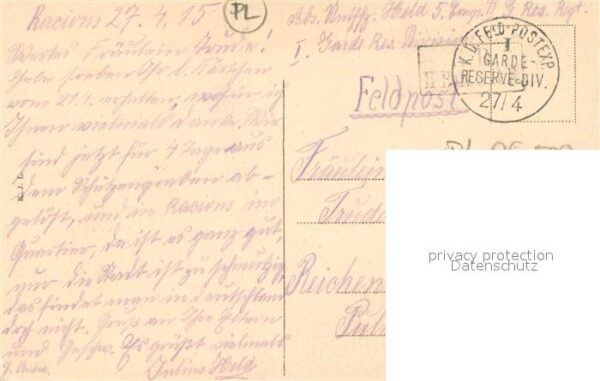 Racions 27. 4. 15
PL
Wertes Fräulein Trude!
Habe soeben Ihr l. Kärtchen
vom 21.4. erhalten, wofür ich
Ihnen vielmals danke. Wir
sind jetzt für 4 Tage aus
dem Schützengraben ab-
gelöst, und in Racions im
Quartier, da ist es ganz gut,
nur die Stadt ist zu schmutzig,
das findet man in Deutschland
doch nicht. Gruß an Ihre Eltern
und Geschw. Es grüßt vielmals
Julius Held
Abs. Untffz. Held 5. Komp. G. Res. Regt.
I. Garde Res. Division
Feldpost
K.D. FELD-POSTEXP.
I
GARDE-
RESERVE-DIV.
27/4
Fräulein
Trude
privacy protection
Datenschutz